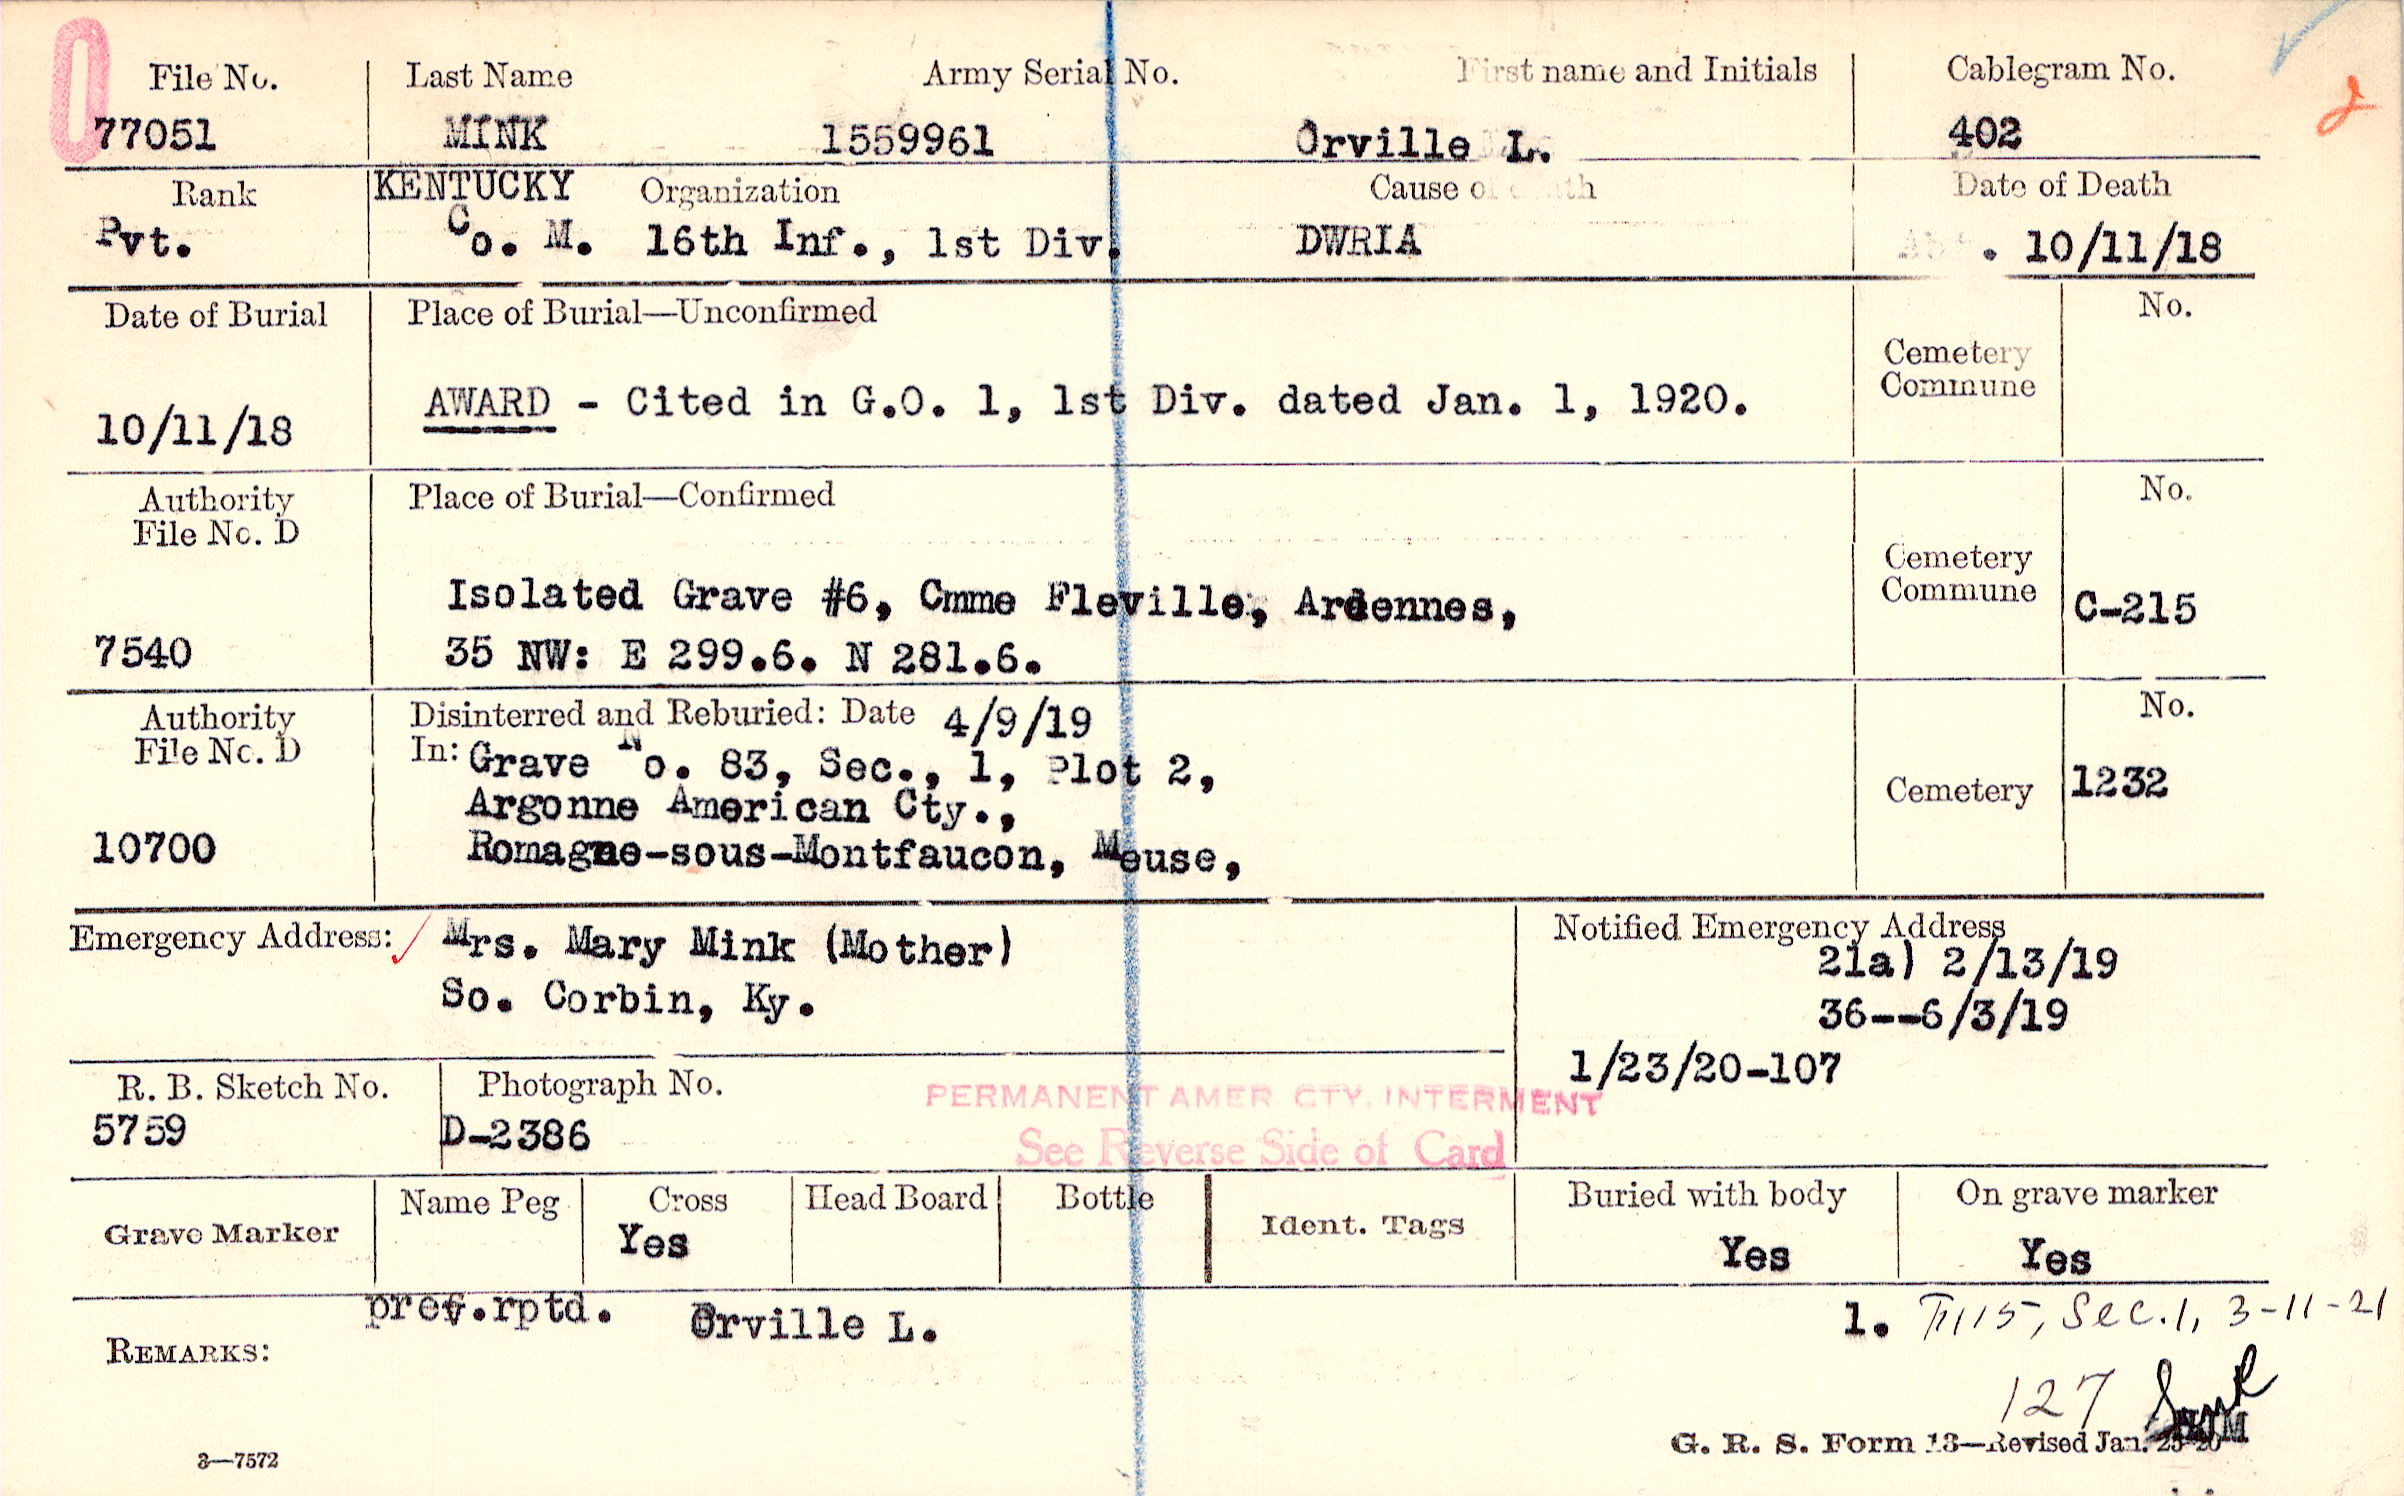 File No. Last Name Army Serial No. First name and Initials Cablegram No.
77051 MINK 1559961 Orville L. 402
Rank KENTUCKY Organization Cause of death Date of Death
Pvt. Co. M. 16th Inf., 1st Div. DWRIA . 10/11/18
Date of Burial Place of Burial—Unconfirmed No.
Cemetery
Commune
10/11/18 AWARD - Cited in G.O. 1, 1st Div. dated Jan. 1, 1920.
Authority Place of Burial—Confirmed No.
File No. D
Cemetery
Commune
Isolated Grave #6, Cmme Fleville, Ardennes, C-215
7540 35 NW: E 299.6. N 281.6.
Authority Disinterred and Reburied: Date 4/9/19 No.
File No. D In: Grave No. 83, Sec., 1, Plot 2,
Cemetery 1232
Argonne American Cty.,
10700 Romagne-sous-Montfaucon, Meuse,
Emergency Address: Mrs. Mary Mink (Mother) Notified Emergency Address
21a) 2/13/19
So. Corbin, Ky. 36--6/3/19
1/23/20-107
R. B. Sketch No. Photograph No. PERMANENT AMER CTY. INTERMENT
5759 D-2386 See Reverse Side of Card
Grave Marker Name Peg Cross Head Board Bottle Ident. Tags Buried with body On grave marker
Yes Yes Yes
REMARKS: prev.rptd. Orville L. 1. Sec. 1, 3-11-21
127
3—7572 G. R. S. Form 13—Revised Jan.